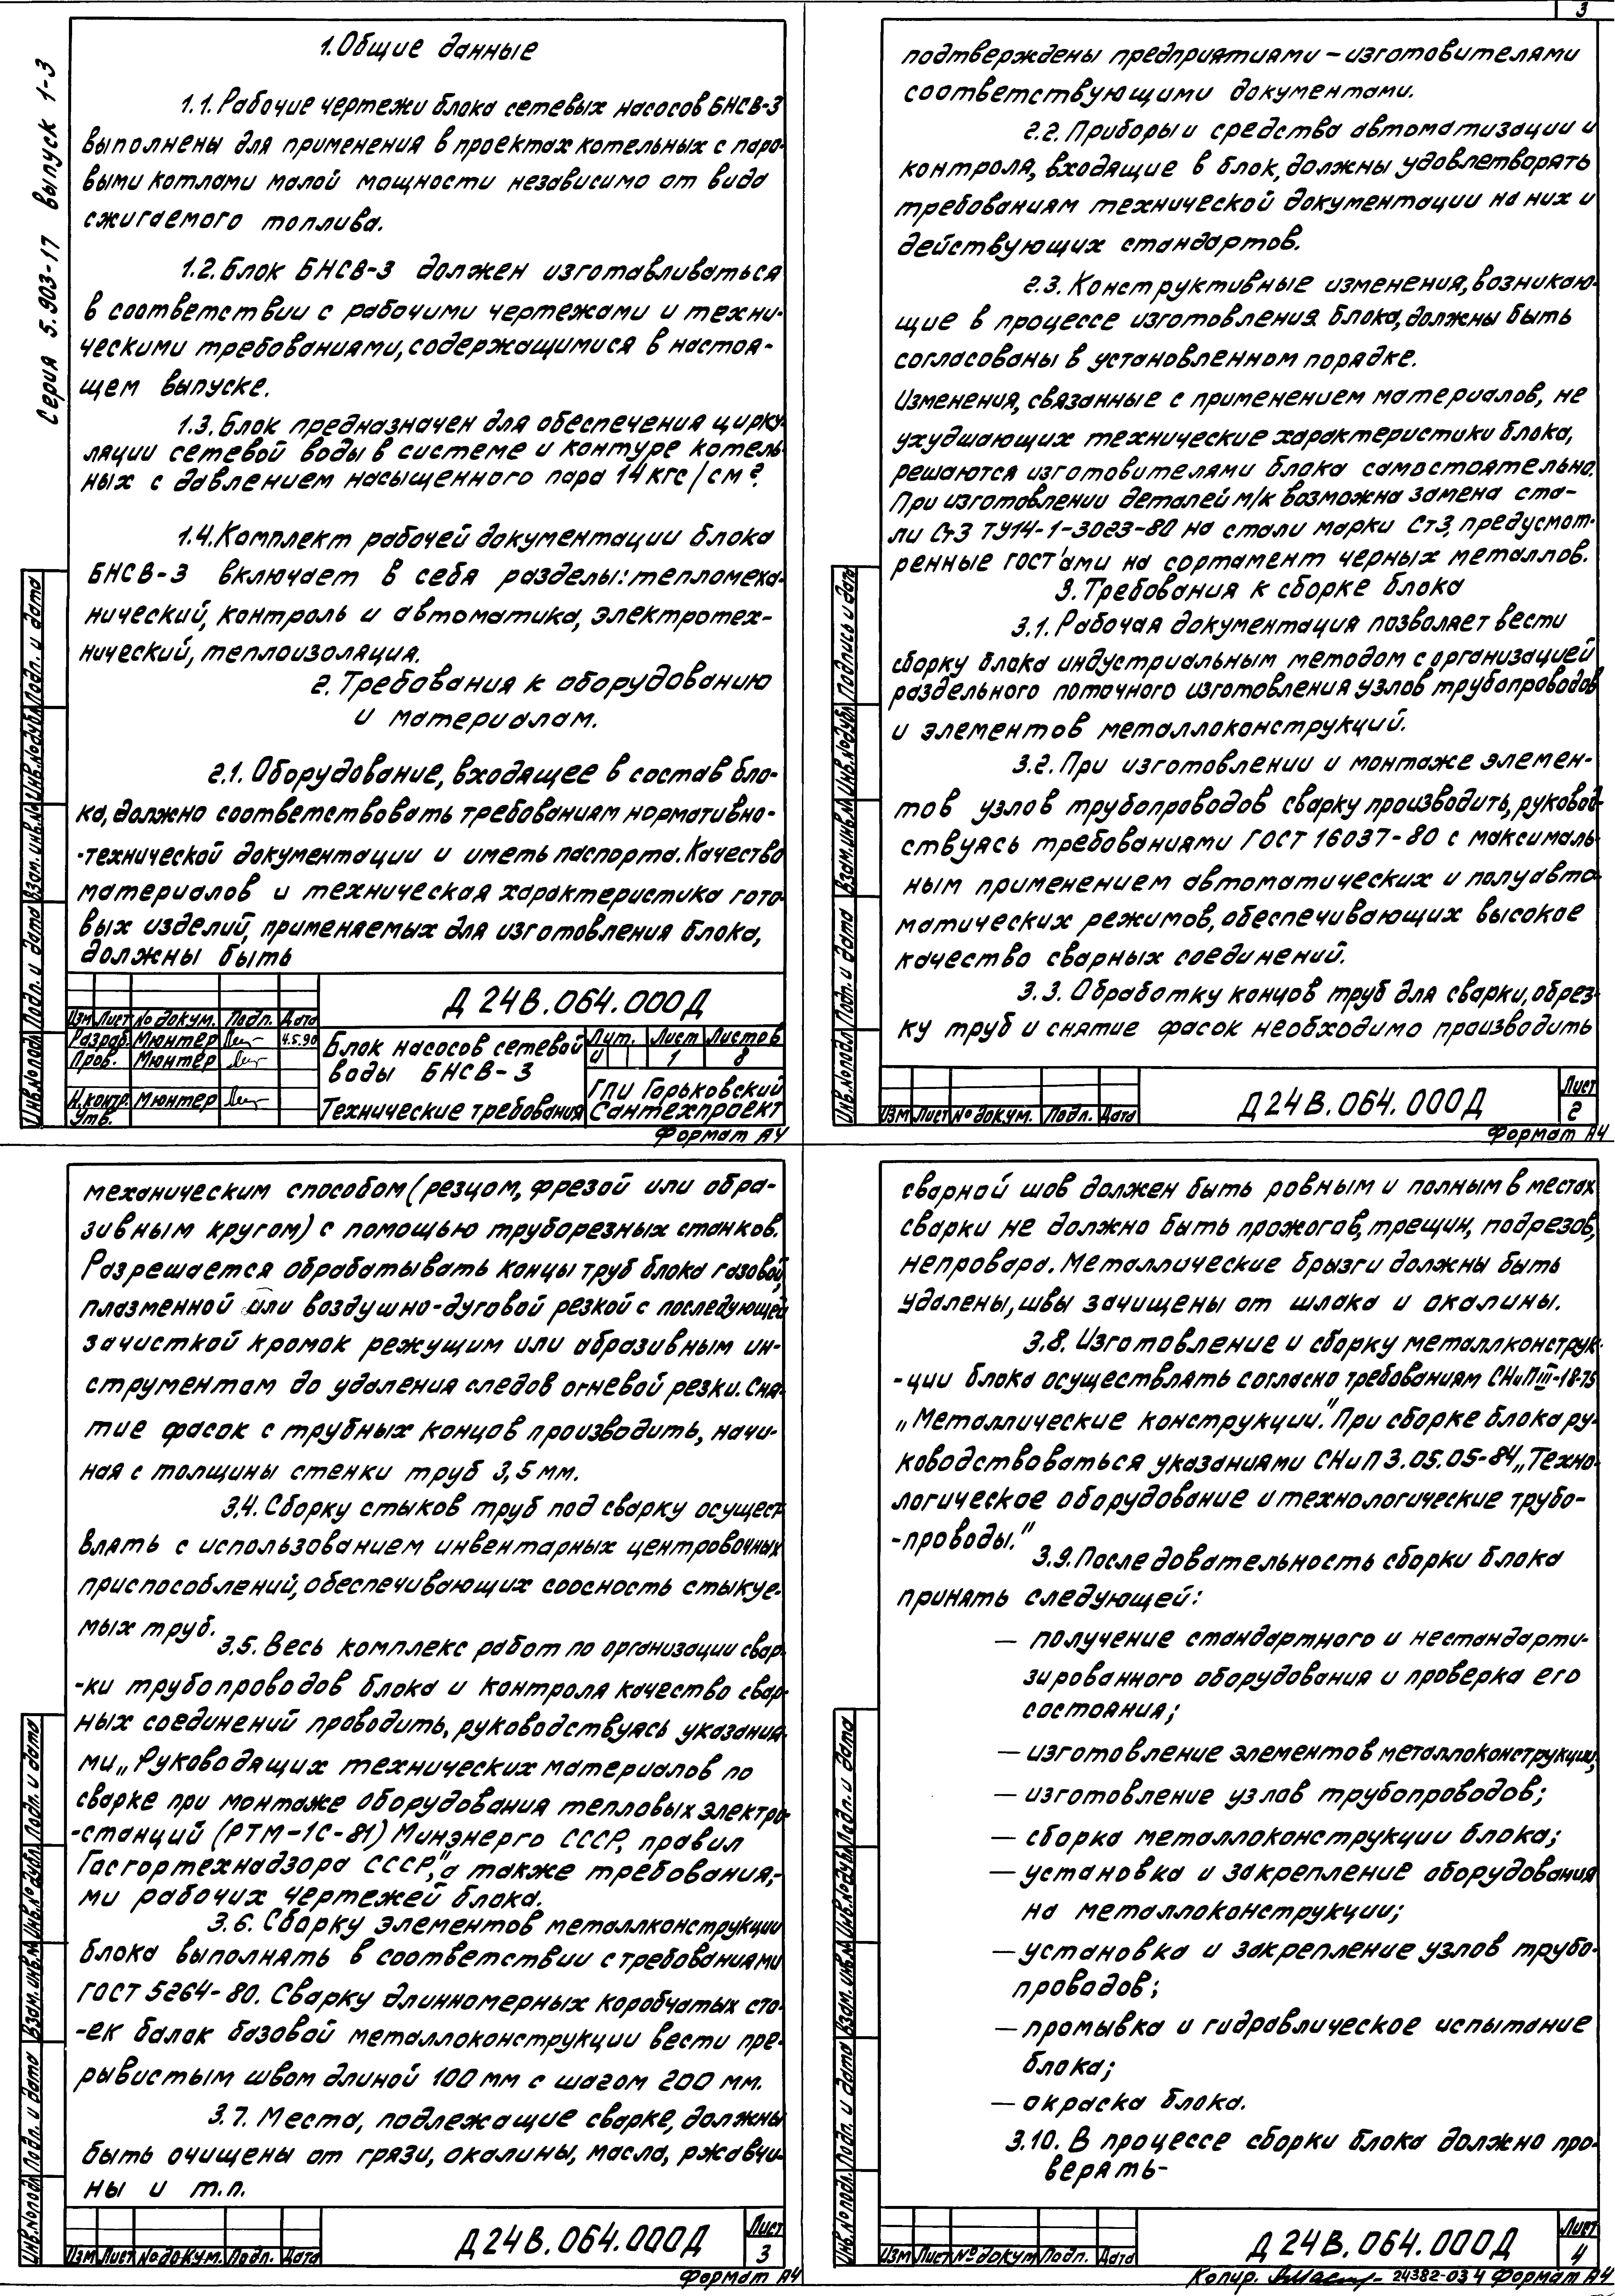 3
Серия 5.903-17 выпуск 1-3
1. Общие данные
1.1. Рабочие чертежи блока сетевых насосов БНСВ-3
выполнены для применения в проектах котельных с паро-
выми котлами малой мощности независимо от вида
сжигаемого топлива.
1.2. Блок БНСВ-3 должен изготавливаться
в соответствии с рабочими чертежами и техни-
ческими требованиями, содержащимися в настоя-
щем выпуске.
1.3. Блок предназначен для обеспечения цирку-
ляции сетевой воды в системе и контуре котель-
ных с давлением насыщенного пара 14 кгс/см².
1.4. Комплект рабочей документации блока
БНСВ-3 включает в себя разделы: тепломеха-
нический, контроль и автоматика, электротех-
нический, теплоизоляция.
2. Требования к оборудованию
и материалам.
2.1. Оборудование, входящее в состав бло-
ка, должно соответствовать требованиям нормативно-
-технической документации и иметь паспорта. Качество
материалов и техническая характеристика гото-
вых изделий, применяемых для изготовления блока,
должны быть
Д 24В.064.000Д
Изм Лист № докум. Подп. Дата
Разраб. Мюнтер 4.5.90
Пров. Мюнтер
Н.контр. Мюнтер
Утв.
Блок насосов сетевой
воды БНСВ-3
Технические требования
Лит. Лист Листов
И 1 8
ГПИ Горьковский
Сантехпроект
Формат А4
Инв.№подл. Подп. и дата Взам.инв.№ Инв.№дубл. Подп. и дата
подтверждены предприятиями – изготовителями
соответствующими документами.
2.2. Приборы и средства автоматизации и
контроля, входящие в блок, должны удовлетворять
требованиям технической документации на них и
действующих стандартов.
2.3. Конструктивные изменения, возникаю-
щие в процессе изготовления блока, должны быть
согласованы в установленном порядке.
Изменения, связанные с применением материалов, не
ухудшающих технические характеристики блока,
решаются изготовителями блока самостоятельно.
При изготовлении деталей м/к возможна замена ста-
ли Ст3 ТУ14-1-3023-80 на стали марки Ст3, предусмот-
ренные ГОСТ'ами на сортамент черных металлов.
3. Требования к сборке блока
3.1. Рабочая документация позволяет вести
сборку блока индустриальным методом с организацией
раздельного поточного изготовления узлов трубопроводов
и элементов металлоконструкций.
3.2. При изготовлении и монтаже элемен-
тов узлов трубопроводов сварку производить, руковод-
ствуясь требованиями ГОСТ 16037-80 с максималь-
ным применением автоматических и полуавто-
матических режимов, обеспечивающих высокое
качество сварных соединений.
3.3. Обработку концов труб для сварки, обрез-
ку труб и снятие фасок необходимо производить
Изм Лист № докум. Подп. Дата
Д24В.064.000Д
Лист
2
Формат А4
Инв.№подл. Подп. и дата Взам.инв.№ Инв.№дубл. Подпись и дата
механическим способом (резцом, фрезой или абра-
зивным кругом) с помощью труборезных станков.
Разрешается обрабатывать концы труб блока газовой,
плазменной или воздушно-дуговой резкой с последующей
зачисткой кромок режущим или абразивным ин-
струментом до удаления следов огневой резки. Сня-
тие фасок с трубных концов производить, начи-
ная с толщины стенки труб 3,5 мм.
3.4. Сборку стыков труб под сварку осущест-
влять с использованием инвентарных центровочных
приспособлений, обеспечивающих соосность стыкуе-
мых труб.
3.5. Весь комплекс работ по организации свар-
-ки трубопроводов блока и контроля качество свар-
ных соединений проводить, руководствуясь указания-
ми „Руководящих технических материалов по
сварке при монтаже оборудования тепловых электро-
-станций (РТМ-1С-81) Минэнерго СССР, правил
Госгортехнадзора СССР", а также требования-
ми рабочих чертежей блока.
3.6. Сборку элементов металлконструкции
блока выполнять в соответствии с требованиями
ГОСТ 5264-80. Сварку длинномерных коробчатых сто-
-ек балок базовой металлоконструкции вести пре-
рывистым швом длиной 100 мм с шагом 200 мм.
3.7. Места, подлежащие сварке, должны
быть очищены от грязи, окалины, масла, ржавчи-
ны и т.п.
Изм Лист № докум. Подп. Дата
Д24В.064.000Д
Лист
3
Формат А4
Инв.№подл. Подп. и дата Взам.инв.№ Инв.№дубл. Подп. и дата
сварной шов должен быть ровным и полным в местах
сварки не должно быть прожогов, трещин, подрезов,
непровара. Металлические брызги должны быть
удалены, швы зачищены от шлака и окалины.
3.8. Изготовление и сборку металлконструк-
-ции блока осуществлять согласно требованиям СНиПIII-18-75
„Металлические конструкции." При сборке блока ру-
ководствоваться указаниями СНиП 3.05.05-84 „Техно-
логическое оборудование и технологические трубо-
-проводы."
3.9. Последовательность сборки блока
принять следующей:
— получение стандартного и нестандарти-
зированного оборудования и проверка его
состояния;
— изготовление элементов металлоконструкции;
— изготовление узлов трубопроводов;
— сборка металлоконструкции блока;
— установка и закрепление оборудования
на металлоконструкции;
— установка и закрепление узлов трубо-
проводов;
— промывка и гидравлическое испытание
блока;
— окраска блока.
3.10. В процессе сборки блока должно про-
верять-
Изм Лист № докум Подп. Дата
Д24В.064.000Д
Лист
4
Копир. 24382-03 4 Формат А4
Инв.№подл. Подп. и дата Взам.инв.№ Инв.№дубл. Подп. и дата